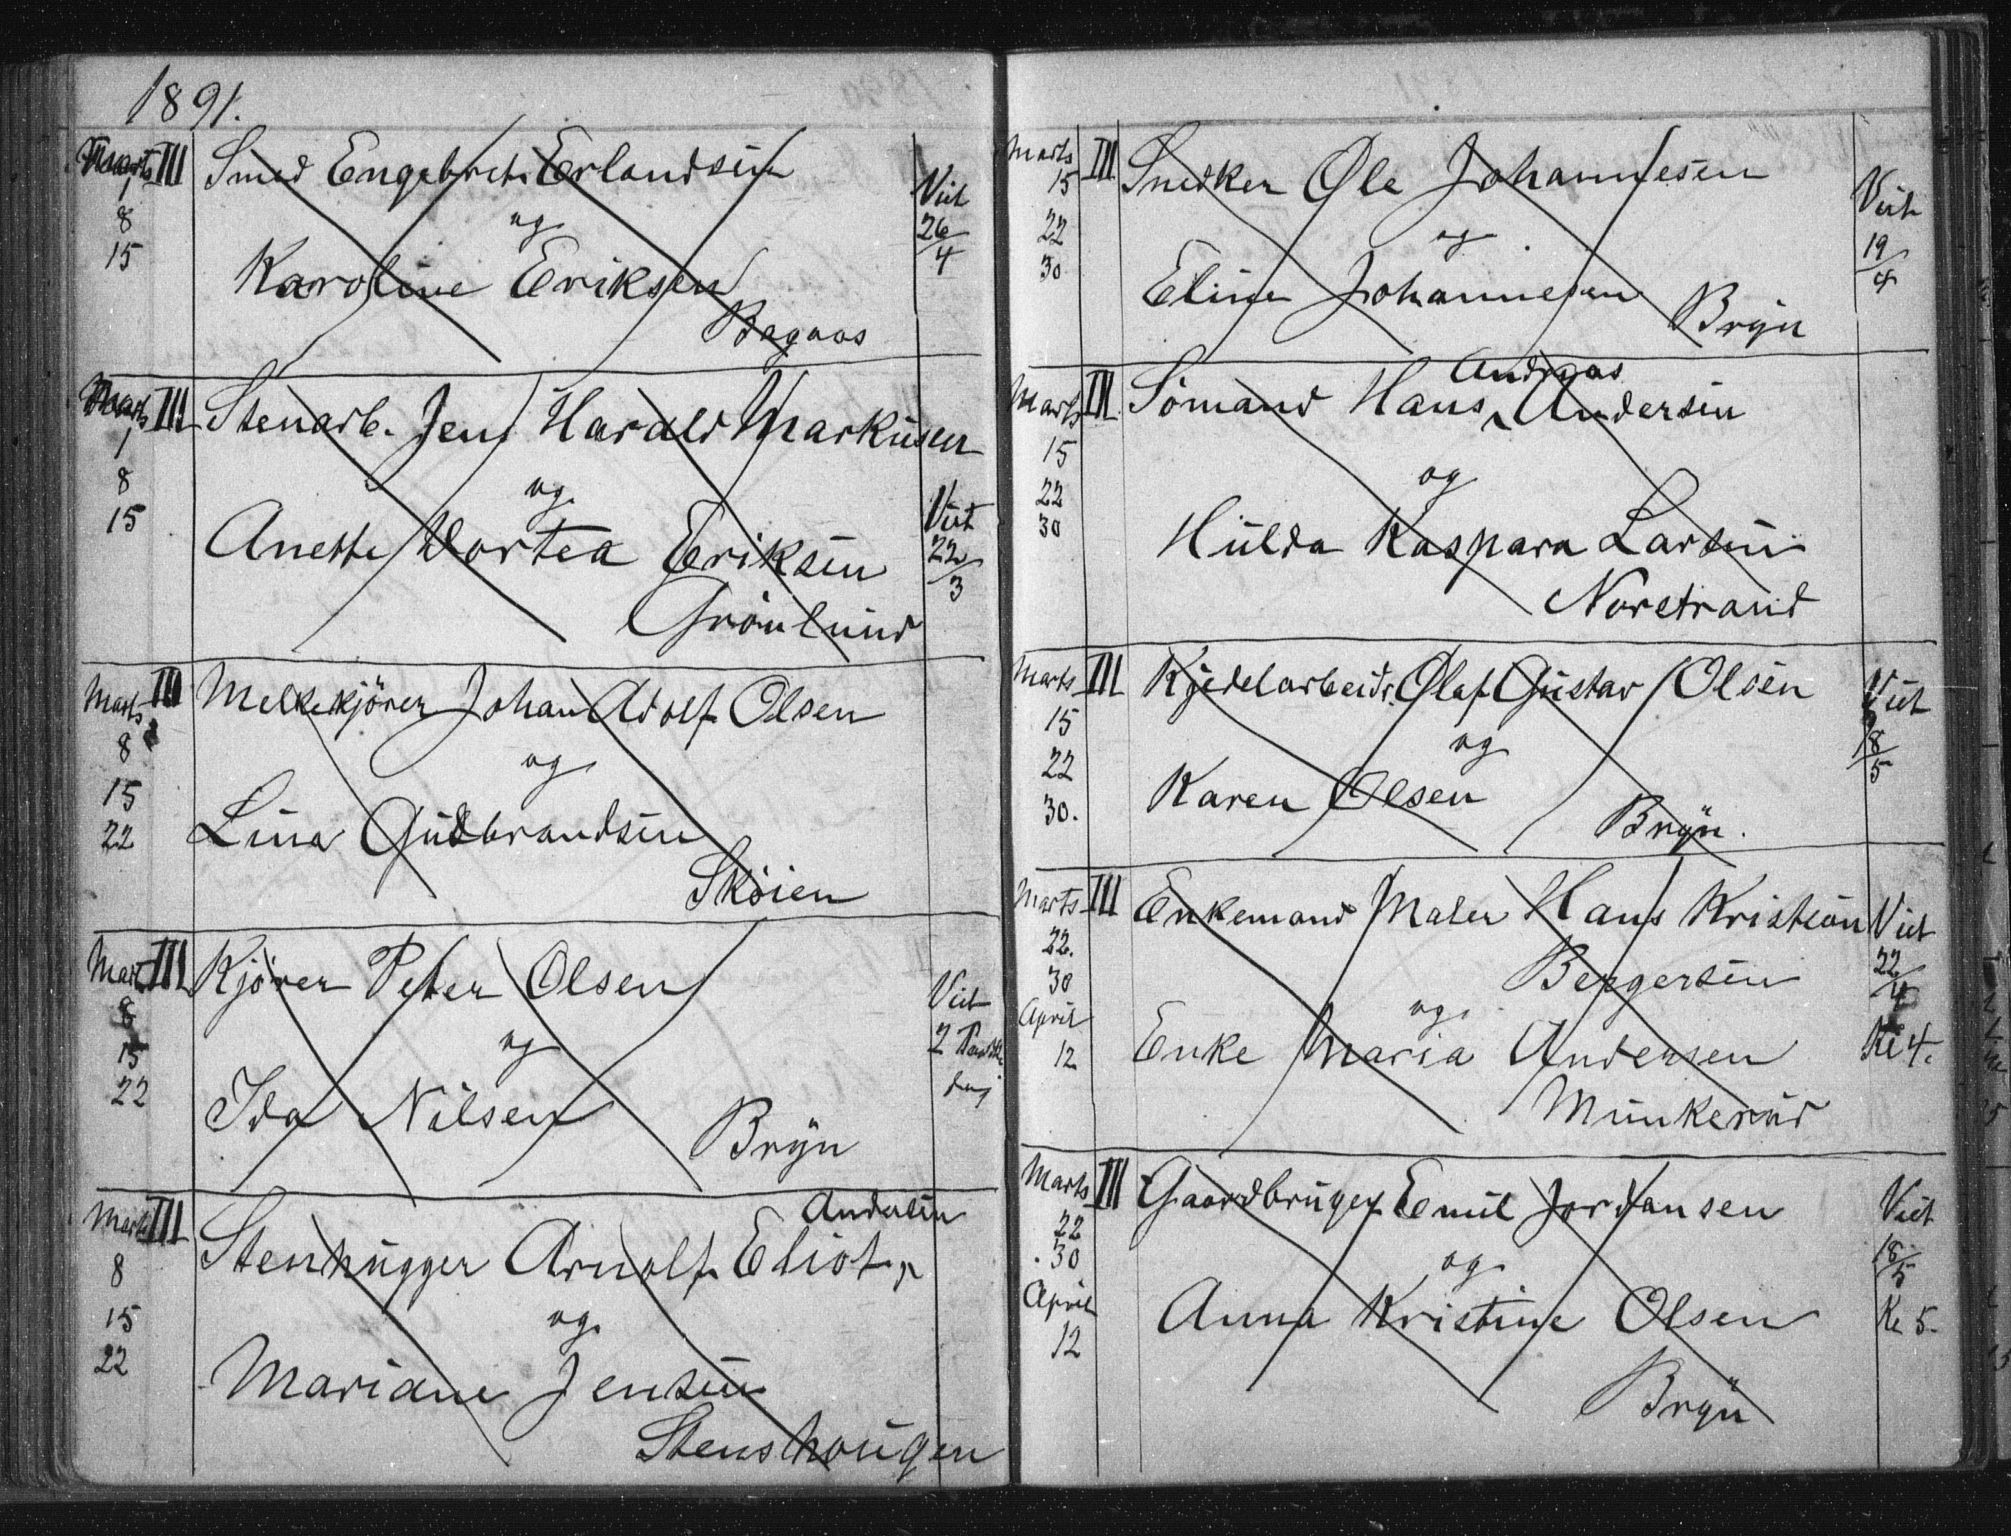 1891.
Marts III Smed Engebret Erlandsen
1
8 og Viet 26/4
15 Karoline Eriksen
Bagaas
Marts III Stenarb. Jens Harald Markusen
1
8 og Viet 22/3
15 Anette Dortea Eriksen
Grönlund
Marts III Melkekjörer Johan Adolf Olsen
8 og
15
22 Lina Gudbrandsen
Sköien
Marts III Kjörer Peter Olsen
8 Viet
15 og 2
22 Ida Nilsen dag
Bryn
Marts III Andersen
Stenhugger Arnolf Eliot
8
15 og
22 Mariane Jensen
Stenshougen
Marts III Snedker Ole Johannesen
15 Viet
22 og 19/4
30 Eline Johannesen
Bryn
Andreas
Marts III Sömand Hans Andersen
15
22 og
30 Hulda Kaspara Larsen
Norstrand
Marts III Kjedelarbeidr. Olaf Gustav Olsen
15 og Viet
22 8/5
30. Karen Olsen
Bryn.
Marts III Enkemand Maler Hans Kristian Viet
22. Bergersen 22/4
30 og
April Enke Maria Andersen Kr 4.
12
Munkerud
Marts III Gaardbruger Emil Jordansen Viet
22
30 og 18/5
April Anna Kristine Olsen Kr 5.
12
Bryn